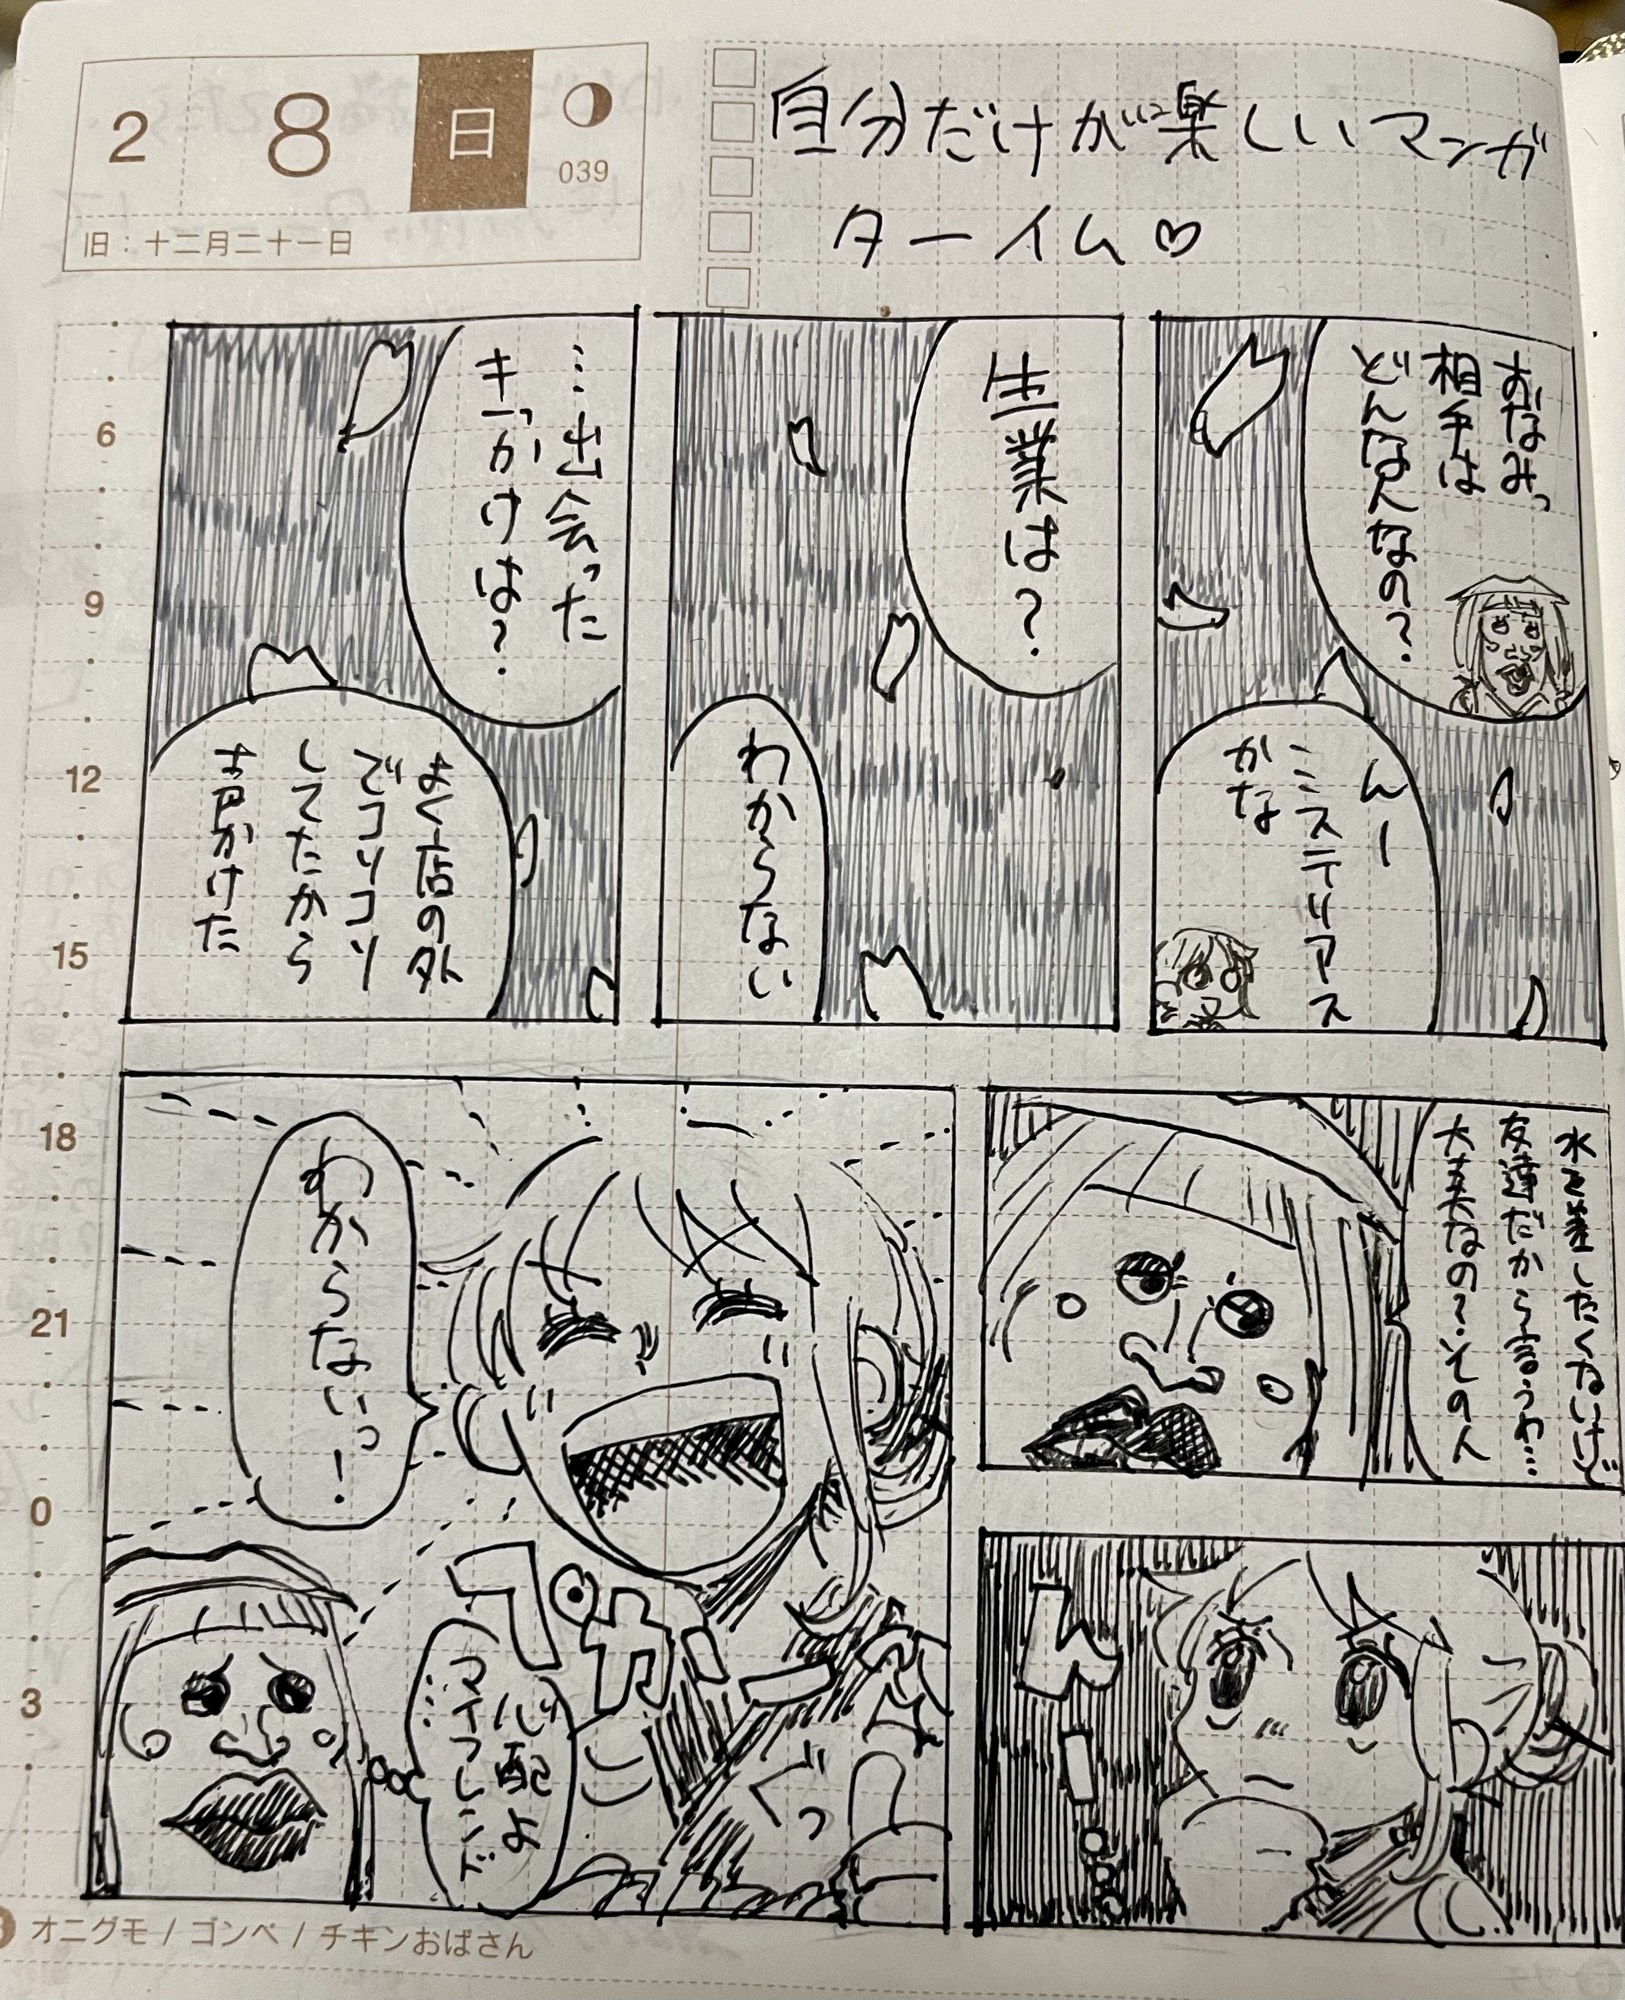 2 8 日
039
旧：十二月二十一日
自分だけが楽しいマンガ
ターイム♡
おなみっ
相手は
どんな人なの？
んー
ミステリアス
かな
生業は？
わからない
…出会った
キッかけは？
よく店の外
でコソコソ
してたから
声かけた
水を差したくないけど
友達だから言うわ…
大丈夫なの？その人
ん
ー
わからないっ！
プカー
ぐっ
心配よ
マイフレンド
…
6
9
12
15
18
21
0
3
オニグモ / ゴンベ / チキンおばさん